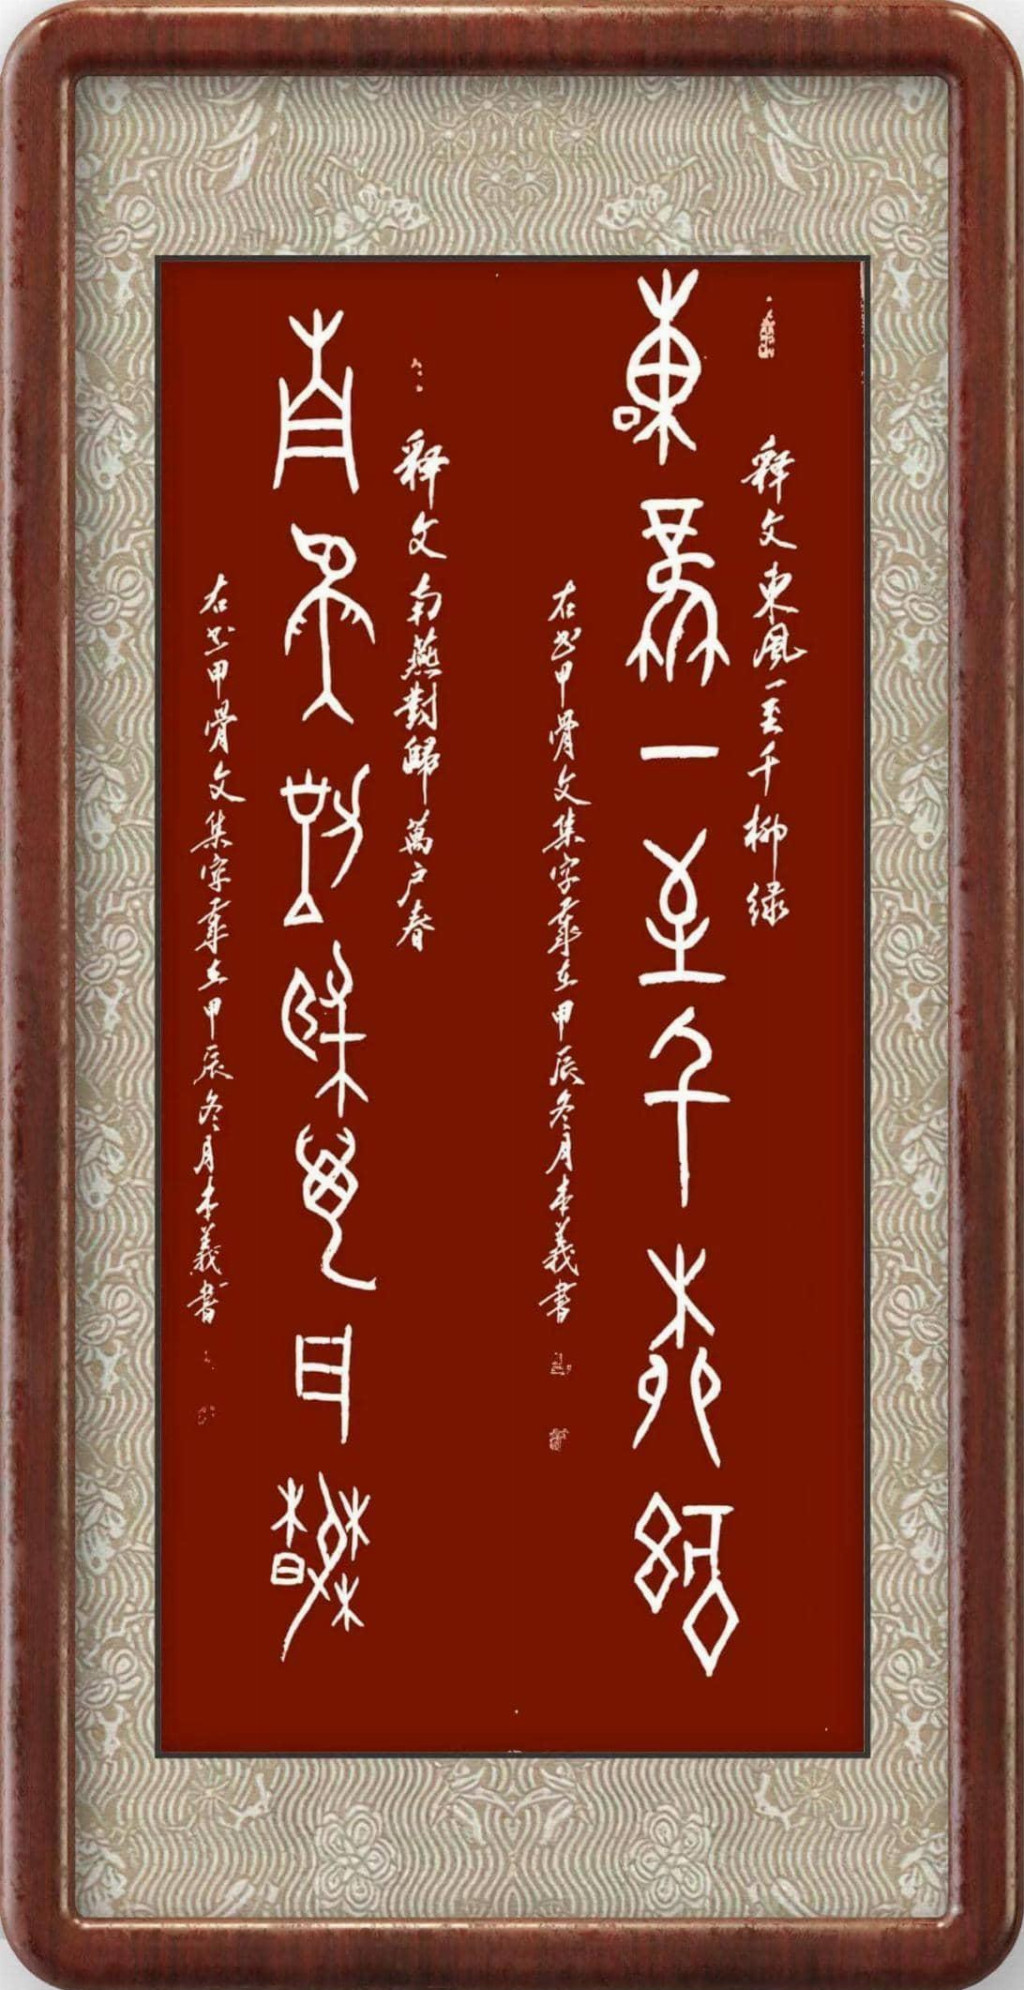 釋文東風一至千柳绿
東風一至千柳绿
右書甲骨文集字聯
甲辰冬月本義書
釋文南燕對歸萬户春
南燕對歸萬户春
右書甲骨文集字聯
甲辰冬月本義書